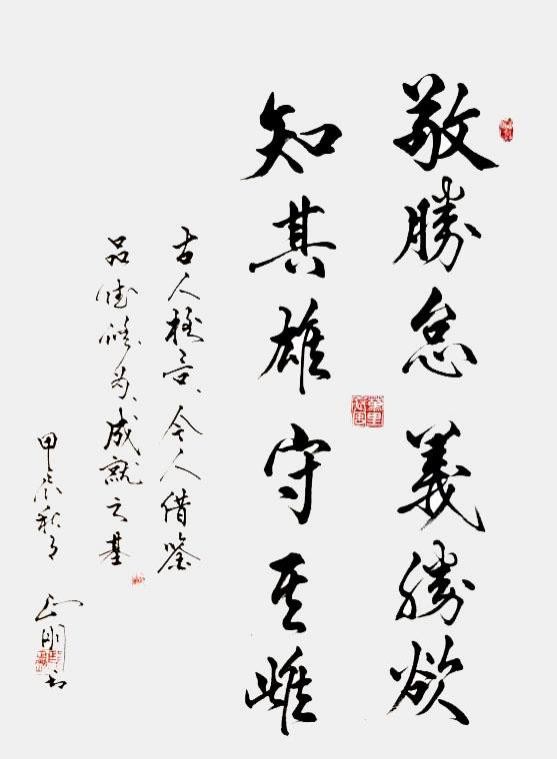 敬勝怠義勝欲
知其雄守其雌
古人格言、今人借鑒
品德操為、成就之基
甲辰秋月
正剛書